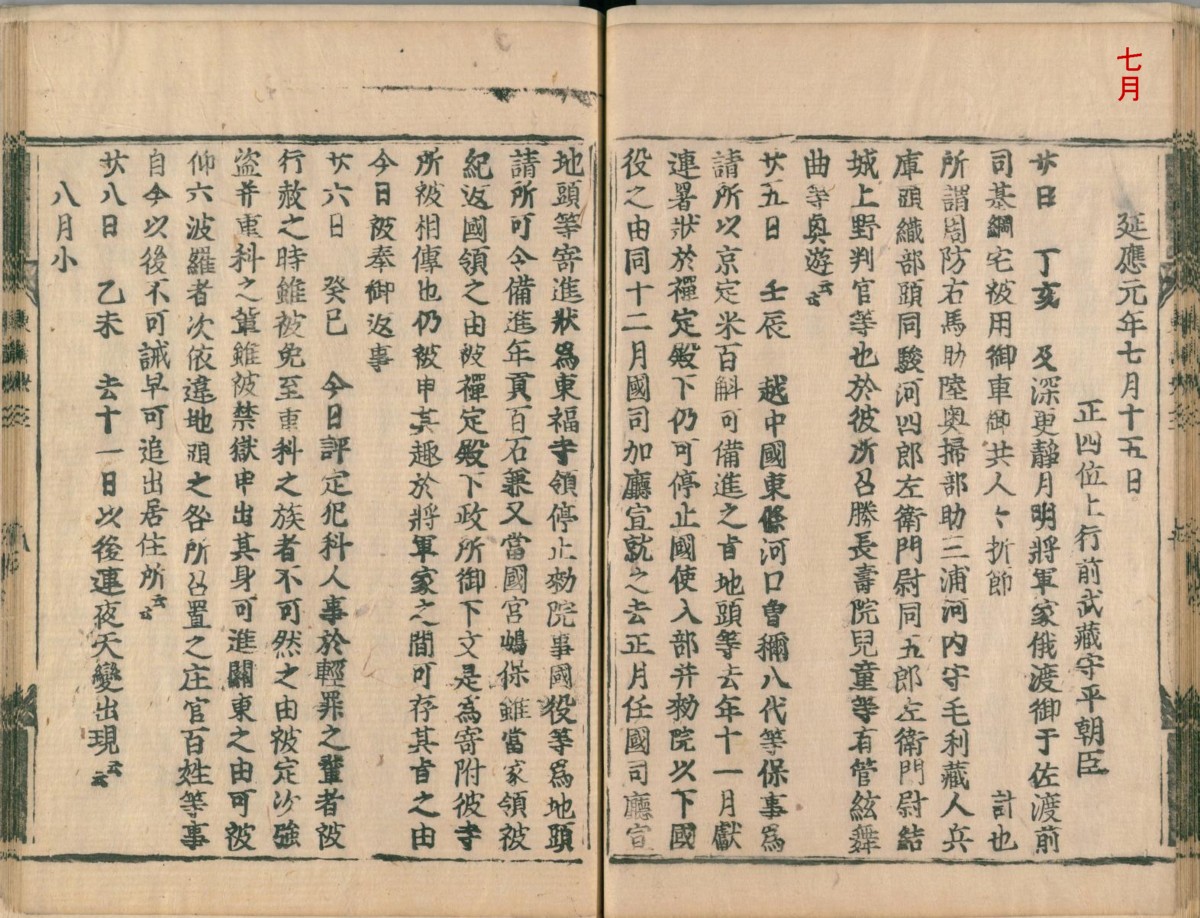 七月
延應元年七月十五日
正四位上行前武藏守平朝臣
廿日 丁亥 及深更靜月明將軍家俄渡御于佐渡前
司基綱宅被用御車御共人々折節 計也
所謂周防右馬助陸奧掃部助三浦河内守毛利藏人兵
庫頭織部頭同駿河四郎左衛門尉同五郎左衛門尉結
城上野判官等也於彼所召勝長壽院兒童等有管絃舞
曲等奧遊云云
廿五日 壬辰 越中國東條河口曾禰八代等保事爲
請所以京定米百斛可備進之旨地頭等去年十一月獻
連署狀於禪定殿下仍可停止國使入部并勑院以下國
役之由同十二月國司加廳宣就之去正月任國司廳宣
地頭等寄進狀爲東福寺領停止勑院事國役等爲地頭
請所可令備進年貢百石兼又當國宮嶋保雖當家領被
紀返國領之由被禪定殿下政所御下文是爲寄附彼寺
所被相傳也仍被申其趣於將軍家之間可存其旨之由
今日被奉御返事
廿六日 癸巳 今日評定犯科人事於輕罪之輩者被
行赦之時雖被免至重科之族者不可然之由被定沙強
盜并重科之輩雖被禁獄申出其身可進關東之由可被
仰六波羅者次依違地頭之各所召置之庄官百姓等事
自今以後不可誡早可追出居住所云云
廿八日 乙未 去十一日以後連夜天變出現云云
八月小